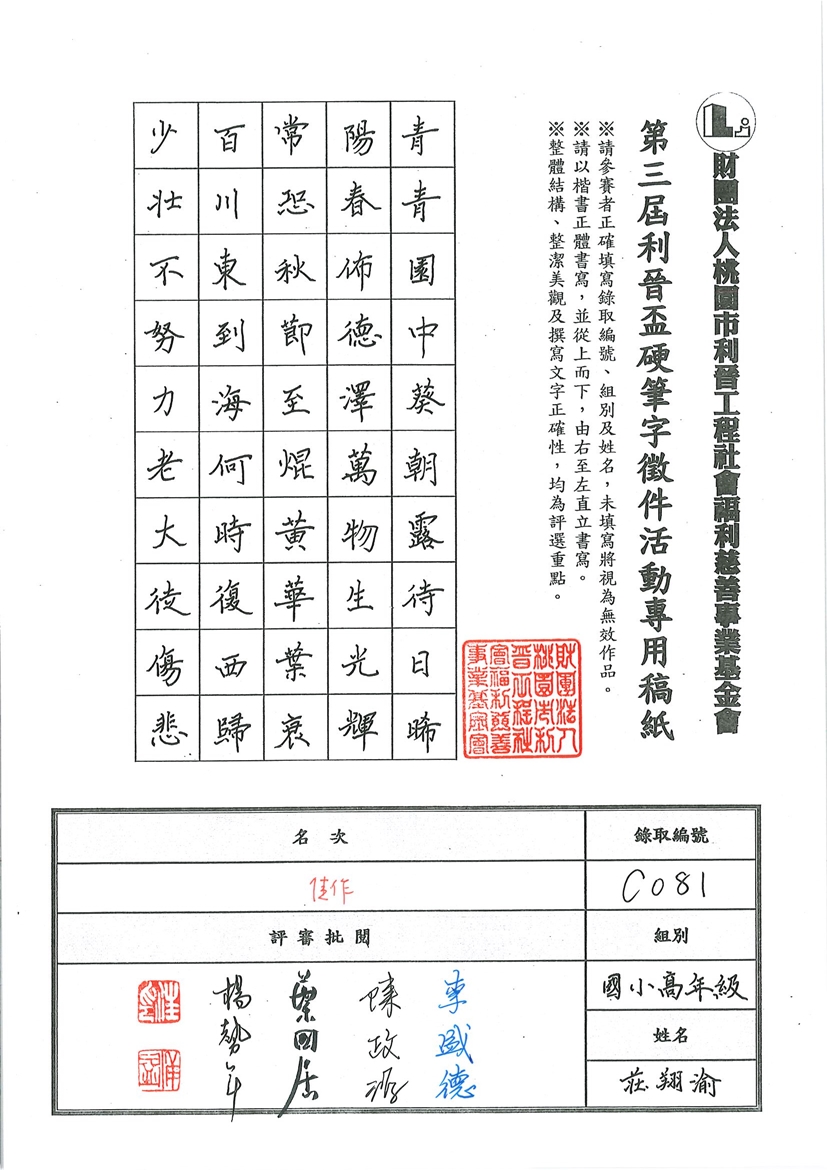 財團法人桃園市利晉工程社會福利慈善事業基金會
第三屆利晉盃硬筆字徵件活動專用稿紙
※請參賽者正確填寫錄取編號、組別及姓名，未填寫將視為無效作品。
※請以楷書正體書寫，並從上而下，由右至左直立書寫。
※整體結構、整潔美觀及撰寫文字正確性，均為評選重點。
財團法人
桃園市利
晉工程社
會福利慈善
事業基金會
青青園中葵朝露待日晞
陽春佈德澤萬物生光輝
常恐秋節至焜黃華葉衰
百川東到海何時復西歸
少壯不努力老大徒傷悲
錄取編號
C081
組別
國小高年級
姓名
莊翔渝
名次
佳作
評審批閱
李盛德
陳政
楊勢年